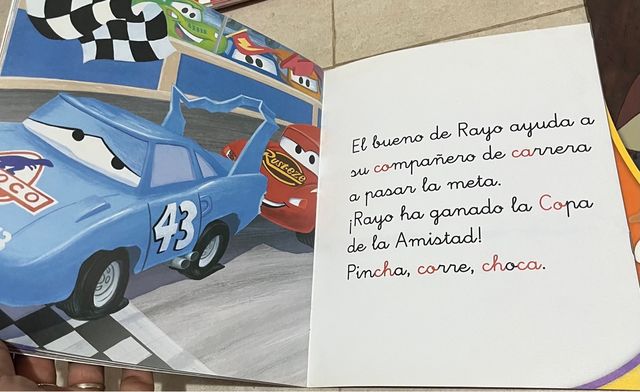 OCO
43
3
Rusteze
El bueno de Rayo ayuda a
su compañero de carrera
a pasar la meta.
¡Rayo ha ganado la Copa
de la Amistad!
Pincha, corre, choca.